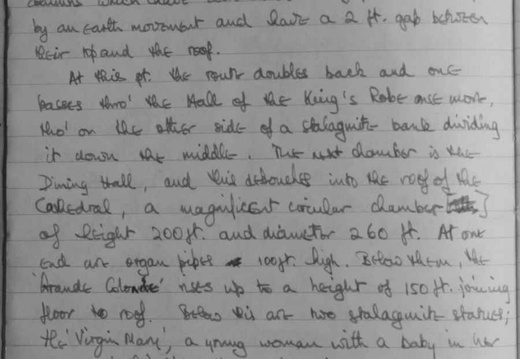 by an earth movement and leave a 2 ft. gap between
their top and the roof.
At this pt. the route doubles back and one
passes thro' the Hall of the King's Robe once more,
tho' on the other side of a stalagmite bank dividing
it down the middle. The next chamber is the
Dining Hall, and this debouches into the roof of the
Cathedral, a magnificent circular chamber [ ]
of height 200ft. and diameter 260 ft. At one
end are organ pipes 100ft. high. Below them, the
'Grande Colonne' rises up to a height of 150 ft. joining
floor to roof. Below this are two stalagmite statues;
the 'Virgin Mary', a young woman with a baby in her